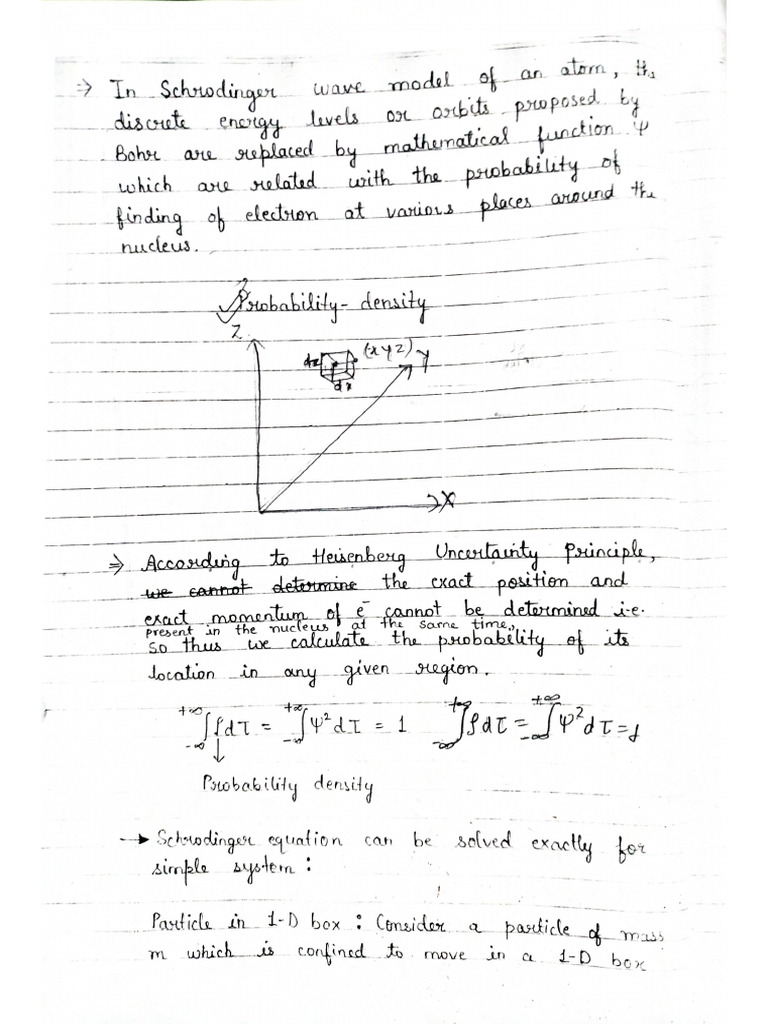 ⇒ In Schrodinger wave model of an atom, the
discrete energy levels or orbits proposed by
Bohr are replaced by mathematical function ψ
which are related with the probability of
finding of electron at various places around the
nucleus.
Probability-density
Z
dz (x y z) Y
dx
X
⇒ According to Heisenberg Uncertainty Principle,
we cannot determine the exact position and
exact momentum of e⁻ cannot be determined i.e.
present in the nucleus at the same time,
so thus we calculate the probability of its
location in any given region.
+∞∫-∞ ρdτ = +∞∫-∞ ψ²dτ = 1 +∞∫-∞ ρdτ = +∞∫-∞ ψ²dτ = 1
↓
Probability density
→ Schrodinger equation can be solved exactly for
simple system:
Particle in 1-D box: Consider a particle of mass
m which is confined to move in a 1-D box